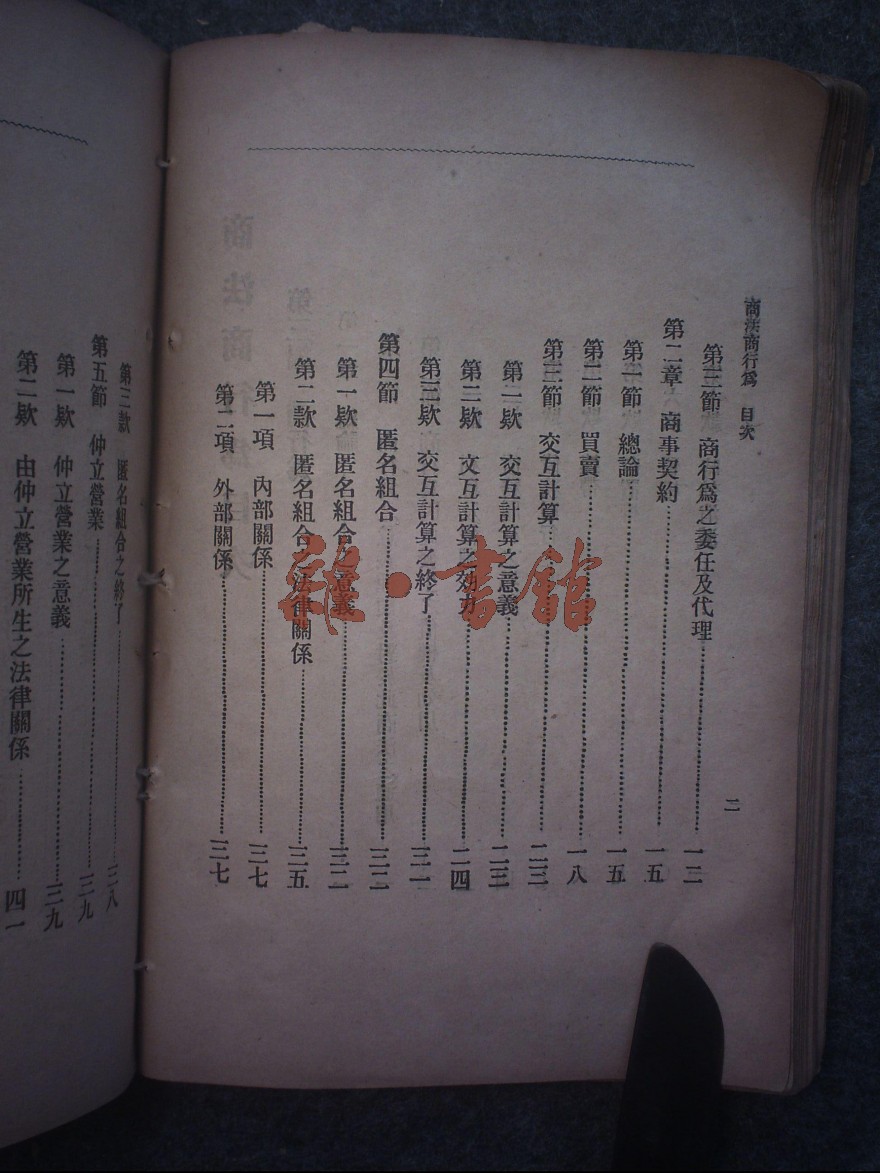 商法商行爲 目次
二
第三節 商行爲之委任及代理 一三
第二章 商事契約 一五
第一節 總論 一五
第二節 買賣 一八
第三節 交互計算 二三
第一欵 交互計算之意義 二三
第二欵 交互計算之効力 二四
第三欵 交互計算之終了 三一
第四節 匿名組合 三二
第一欵 匿名組合之意義 三二
第二款 匿名組合之法律關係 三五
第一項 內部關係 三七
第二項 外部關係 三七
第三款 匿名組合之終了 三八
第五節 仲立營業 三九
第一欵 仲立營業之意義 三九
第二欵 由仲立營業所生之法律關係 四一
雜·書館